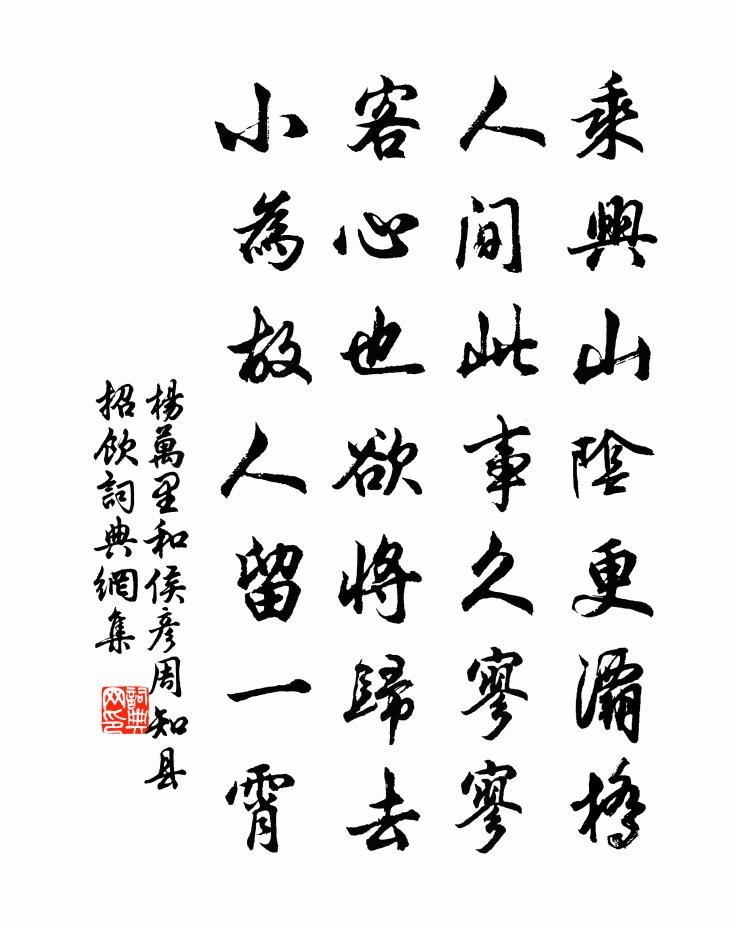 乘興山陰更灞橋
人間此事久寥寥
客心也欲將歸去
小為故人留一霄
楊萬里和侯彥周知县
招飲詞典網集
詞典网印